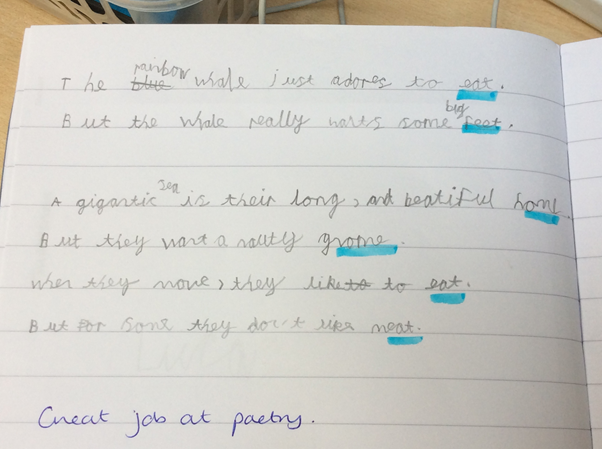 The rainbow whale just adores to eat.
But the whale really wants some big feet.
A gigantic sea is their long, and beatiful home
But they want a nautly gnome.
When they move, they like to eat.
But for some they don't like meat.
Great job at paetry.